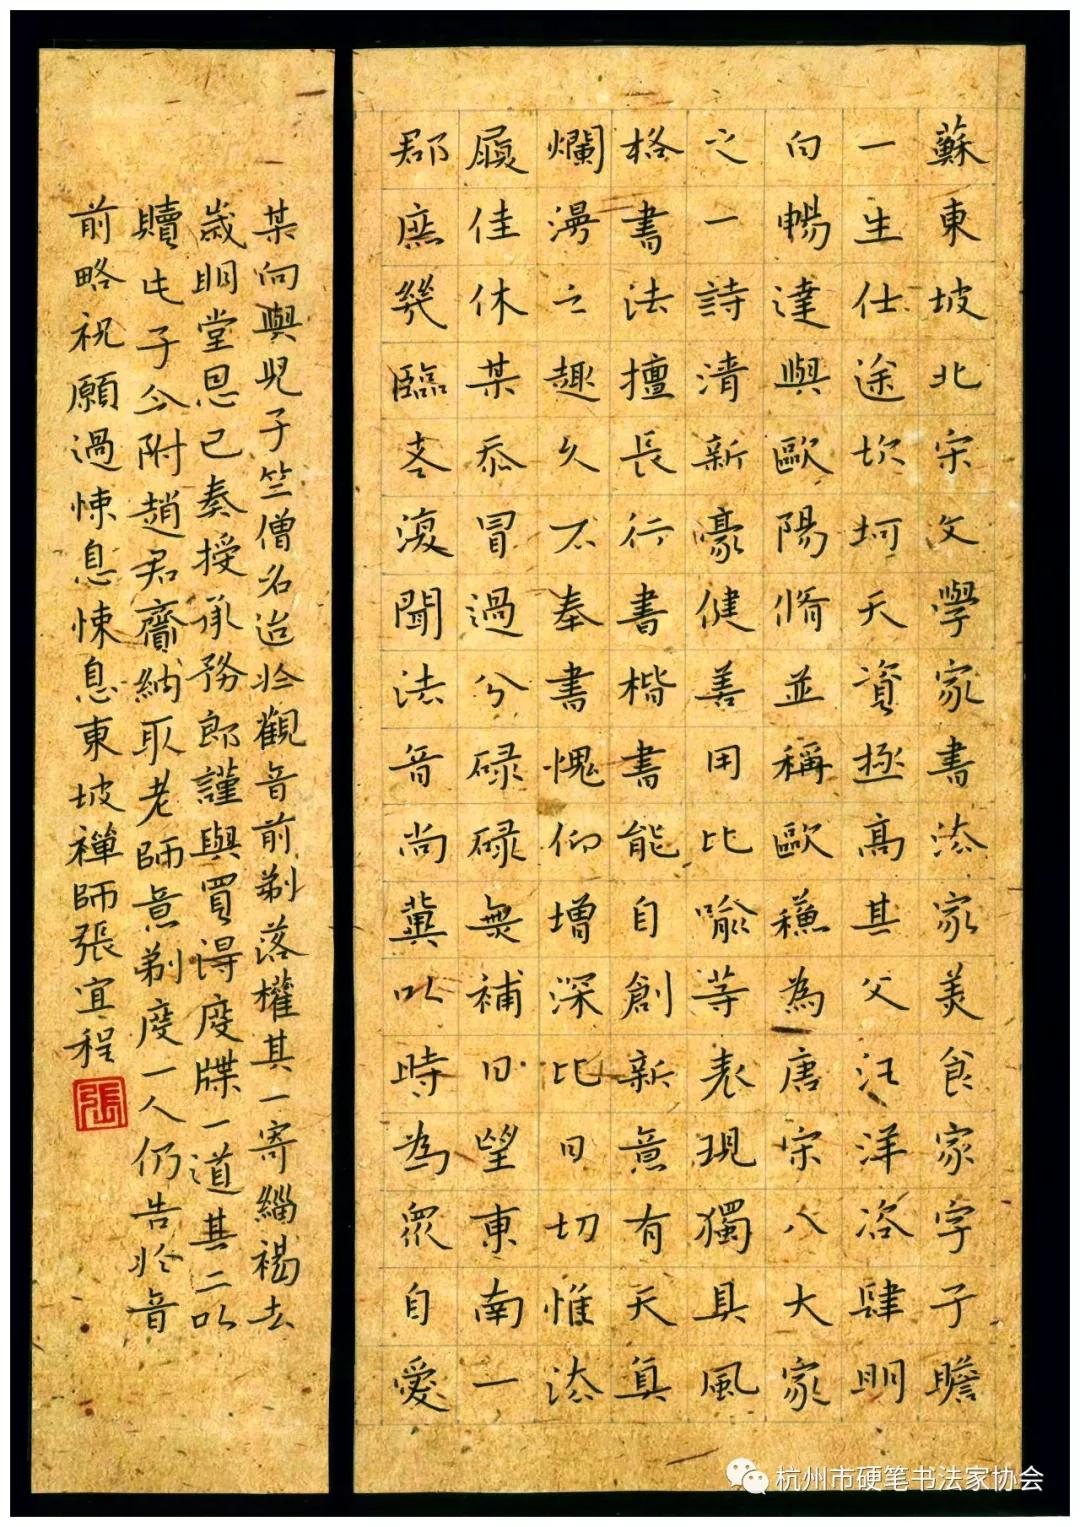 蘇東坡北宋文學家書法家美食家字子瞻
一生仕途坎坷天資極高其父汪洋洛肆明
白暢達與歐陽脩並稱歐蘓為唐宋八大家
之一詩清新豪健善用比喻等表現獨具風
格書法擅長行書楷書能自創新意有天真
爛漫之趣久不奉書愧仰增深比日切惟法
履佳休某忝冒過兮碌碌無補日望東南一
郡庶幾臨老復聞法音尚冀以時為眾自愛
某向與兒子竺僧名迨於觀音前剃落權其一寄緇褐去
歲明堂恩已奏授承務郎謹與買得度牒一道其二以
贖此子今附趙君齎納取老師意剃度一人仍告於音
前略祝願過悚息悚息東坡禪師張宜程
張
杭州市硬笔书法家协会